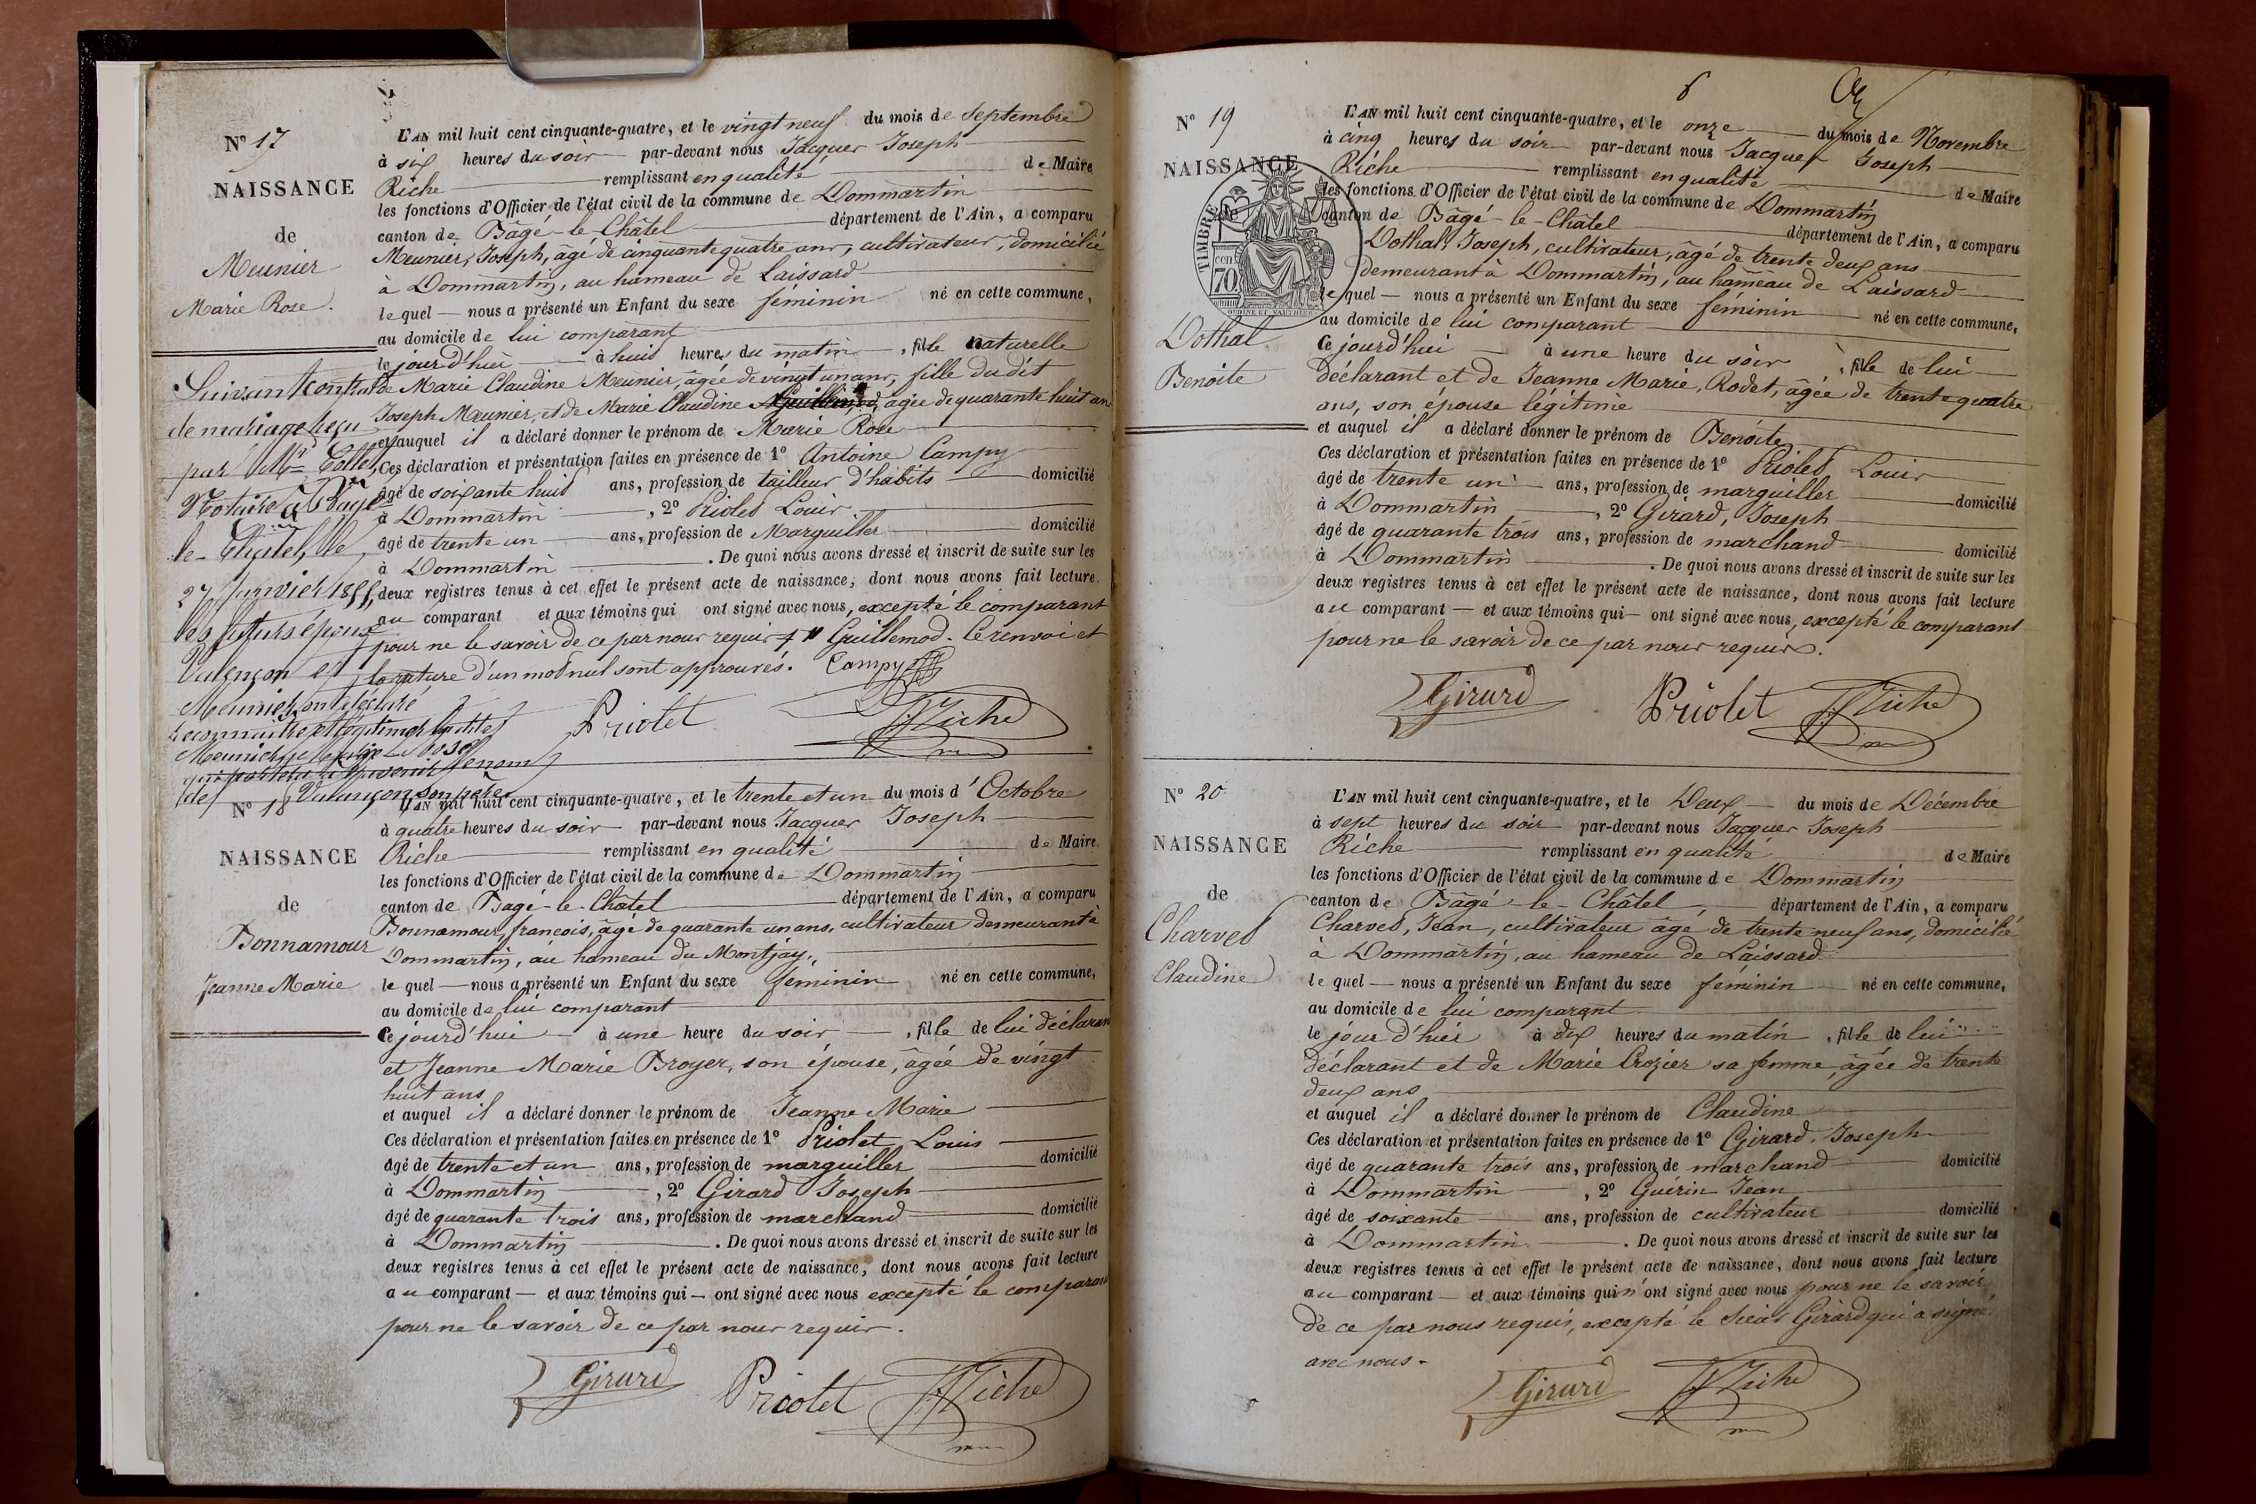 N° 17
NAISSANCE
de
Meunier
Marie Rose.
L'AN mil huit cent cinquante-quatre, et le vingt neuf du mois de Septembre
à six heures du soir par-devant nous Jacques Joseph
Riche remplissant en qualité de Maire
les fonctions d'Officier de l'état civil de la commune de Dommartin
canton de Bâgé-le-Châtel département de l'Ain, a comparu
Meunier, Joseph, âgé de cinquante quatre ans, cultivateur, domicilié
à Dommartin, au hameau de Laissard
lequel — nous a présenté un Enfant du sexe féminin né en cette commune,
au domicile de lui comparant
le jourd'hui à huit heures du matin, fille naturelle
de Marie Claudine Meunier, âgée de vingt un ans, fille du dit
Joseph Meunier, et de Marie Claudine âgée de quarante huit ans
et auquel il a déclaré donner le prénom de Marie Rose
Ces déclaration et présentation faites en présence de 1° Antoine Campy
âgé de soixante huit ans, profession de tailleur d'habits domicilié
à Dommartin, 2° Priolet Louis
âgé de trente un ans, profession de Marguiller domicilié
à Dommartin. De quoi nous avons dressé et inscrit de suite sur les
deux registres tenus à cet effet le présent acte de naissance, dont nous avons fait lecture
au comparant et aux témoins qui ont signé avec nous, excepté le comparant
pour ne le savoir de ce par nous requis Guillemod. Le renvoi et
la rature d'un mot nul sont approuvés. Campy
Priolet JJ Riche
Suivant contrat
de mariage reçu
par Mr
Notaire à Bâgé
le-Châtel, le
27 Janvier 1855,
les futurs époux
Valençon et
Meunier, ont déclaré
reconnaître et légitimer la dite
Meunier, Marie Rose
qui portera à l'avenir le nom
de Valençon son père.
N° 18
NAISSANCE
de
Bonnamour
Jeanne Marie
L'AN mil huit cent cinquante-quatre, et le trente et un du mois d'Octobre
à quatre heures du soir par-devant nous Jacques Joseph
Riche remplissant en qualité de Maire
les fonctions d'Officier de l'état civil de la commune de Dommartin
canton de Bagé-le-Châtel département de l'Ain, a comparu
Bonnamour, françois, âgé de quarante un ans, cultivateur demeurant à
Dommartin, au hameau du Montjay,
le quel — nous a présenté un Enfant du sexe féminin né en cette commune,
au domicile de lui comparant
Ce jourd'hui à une heure du soir, fille de lui déclarant
et Jeanne Marie Broyer, son épouse, âgée de vingt
huit ans
et auquel il a déclaré donner le prénom de Jeanne Marie
Ces déclaration et présentation faites en présence de 1° Priolet, Louis
âgé de trente et un ans, profession de marguiller domicilié
à Dommartin, 2° Girard Joseph
âgé de quarante trois ans, profession de marchand domicilié
à Dommartin. De quoi nous avons dressé et inscrit de suite sur les
deux registres tenus à cet effet le présent acte de naissance, dont nous avons fait lecture
au comparant — et aux témoins qui — ont signé avec nous excepté le comparant
pour ne le savoir de ce par nous requis.
Girard Priolet JJ Riche
6
N° 19
NAISSANCE
de
Dothal
Benoite
TIMBRE
70
L'AN mil huit cent cinquante-quatre, et le onze du mois de Novembre
à cinq heures du soir par-devant nous Jacques Joseph
Riche remplissant en qualité de Maire
les fonctions d'Officier de l'état civil de la commune de Dommartin
canton de Bâgé-le-Châtel département de l'Ain, a comparu
Dothal, Joseph, cultivateur, âgé de trente deux ans
demeurant à Dommartin, au hameau de Laissard
le quel — nous a présenté un Enfant du sexe féminin né en cette commune,
au domicile de lui comparant
Ce jourd'hui à une heure du soir, fille de lui
déclarant et de Jeanne Marie, Rodet, âgée de trente quatre
ans, son épouse légitime
et auquel il a déclaré donner le prénom de Benoite
Ces déclaration et présentation faites en présence de 1° Priolet Louis
âgé de trente un ans, profession de marguiller domicilié
à Dommartin, 2° Girard, Joseph
âgé de quarante trois ans, profession de marchand domicilié
à Dommartin. De quoi nous avons dressé et inscrit de suite sur les
deux registres tenus à cet effet le présent acte de naissance, dont nous avons fait lecture
au comparant — et aux témoins qui — ont signé avec nous, excepté le comparant
pour ne le savoir de ce par nous requis.
Girard Priolet JJ Riche
N° 20
NAISSANCE
de
Charvet
Claudine
L'AN mil huit cent cinquante-quatre, et le Deux du mois de Décembre
à sept heures du soir par-devant nous Jacques Joseph
Riche remplissant en qualité de Maire
les fonctions d'Officier de l'état civil de la commune de Dommartin
canton de Bâgé-le-Châtel, département de l'Ain, a comparu
Charvet, Jean, cultivateur âgé de trente neuf ans, domicilié
à Dommartin, au hameau de Laissard
le quel — nous a présenté un Enfant du sexe féminin né en cette commune,
au domicile de lui comparant
le jour d'hier à dix heures du matin, fille de lui
déclarant et de Marie Crozier sa femme, âgée de trente
deux ans
et auquel il a déclaré donner le prénom de Claudine
Ces déclaration et présentation faites en présence de 1° Girard, Joseph
âgé de quarante trois ans, profession de marchand domicilié
à Dommartin, 2° Guérin Jean
âgé de soixante ans, profession de cultivateur domicilié
à Dommartin. De quoi nous avons dressé et inscrit de suite sur les
deux registres tenus à cet effet le présent acte de naissance, dont nous avons fait lecture
au comparant — et aux témoins qui n'ont signé avec nous pour ne le savoir
de ce par nous requis, excepté le Sieur Girard qui a signé
avec nous.
Girard JJ Riche